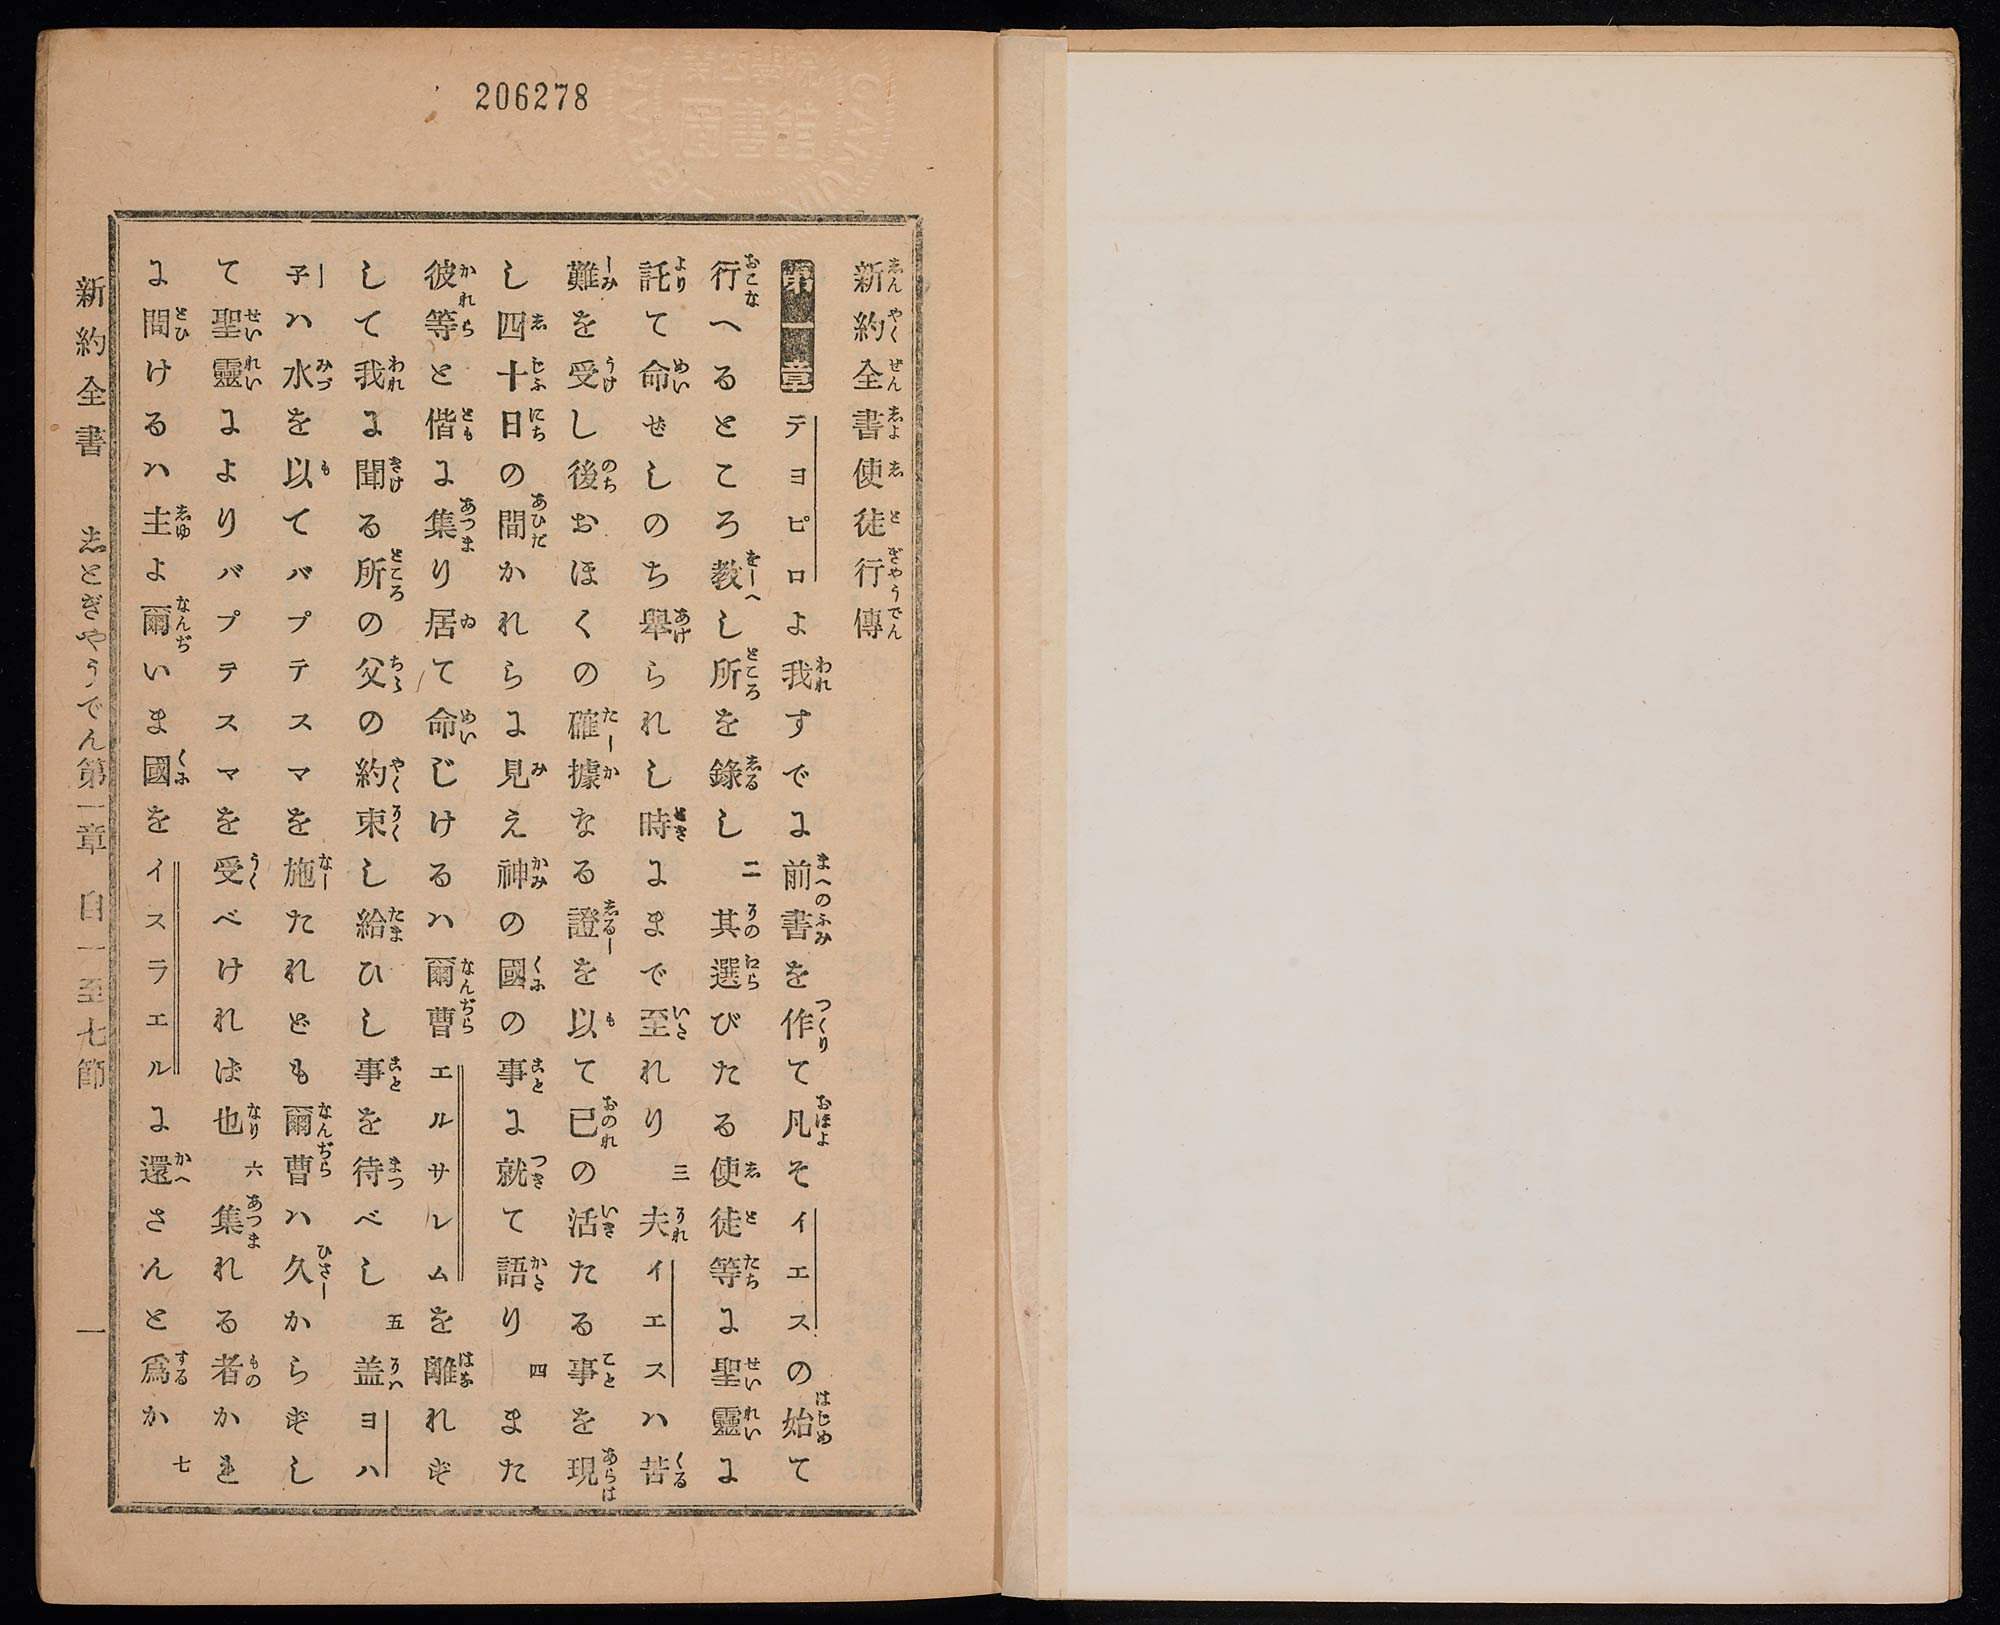 206278
新約全書使徒行傳
第一章 テヨピロよ我すでに前書を作て凡そイエスの始て
行へるところ教し所を錄し 二 其選びたる使徒等に聖靈に
託て命ぜしのち擧られし時にまで至れり 三 夫イエスハ苦
難を受し後おほくの確據なる證を以て已の活たる事を現
し四十日の間かれらに見え神の國の事に就て語り 四 また
彼等と偕に集り居て命じけるハ爾曹エルサレムを離れず
して我に聞る所の父の約束し給ひし事を待べし 五 盖ヨハ
子ハ水を以てバプテスマを施たれども爾曹ハ久からずし
て聖靈によりバプテスマを受べければ也 六 集れる者かれ
に問けるハ主よ爾いま國をイスラエルに還さんと爲か 七
新約全書 志とぎやうでん第一章 自一至七節 一